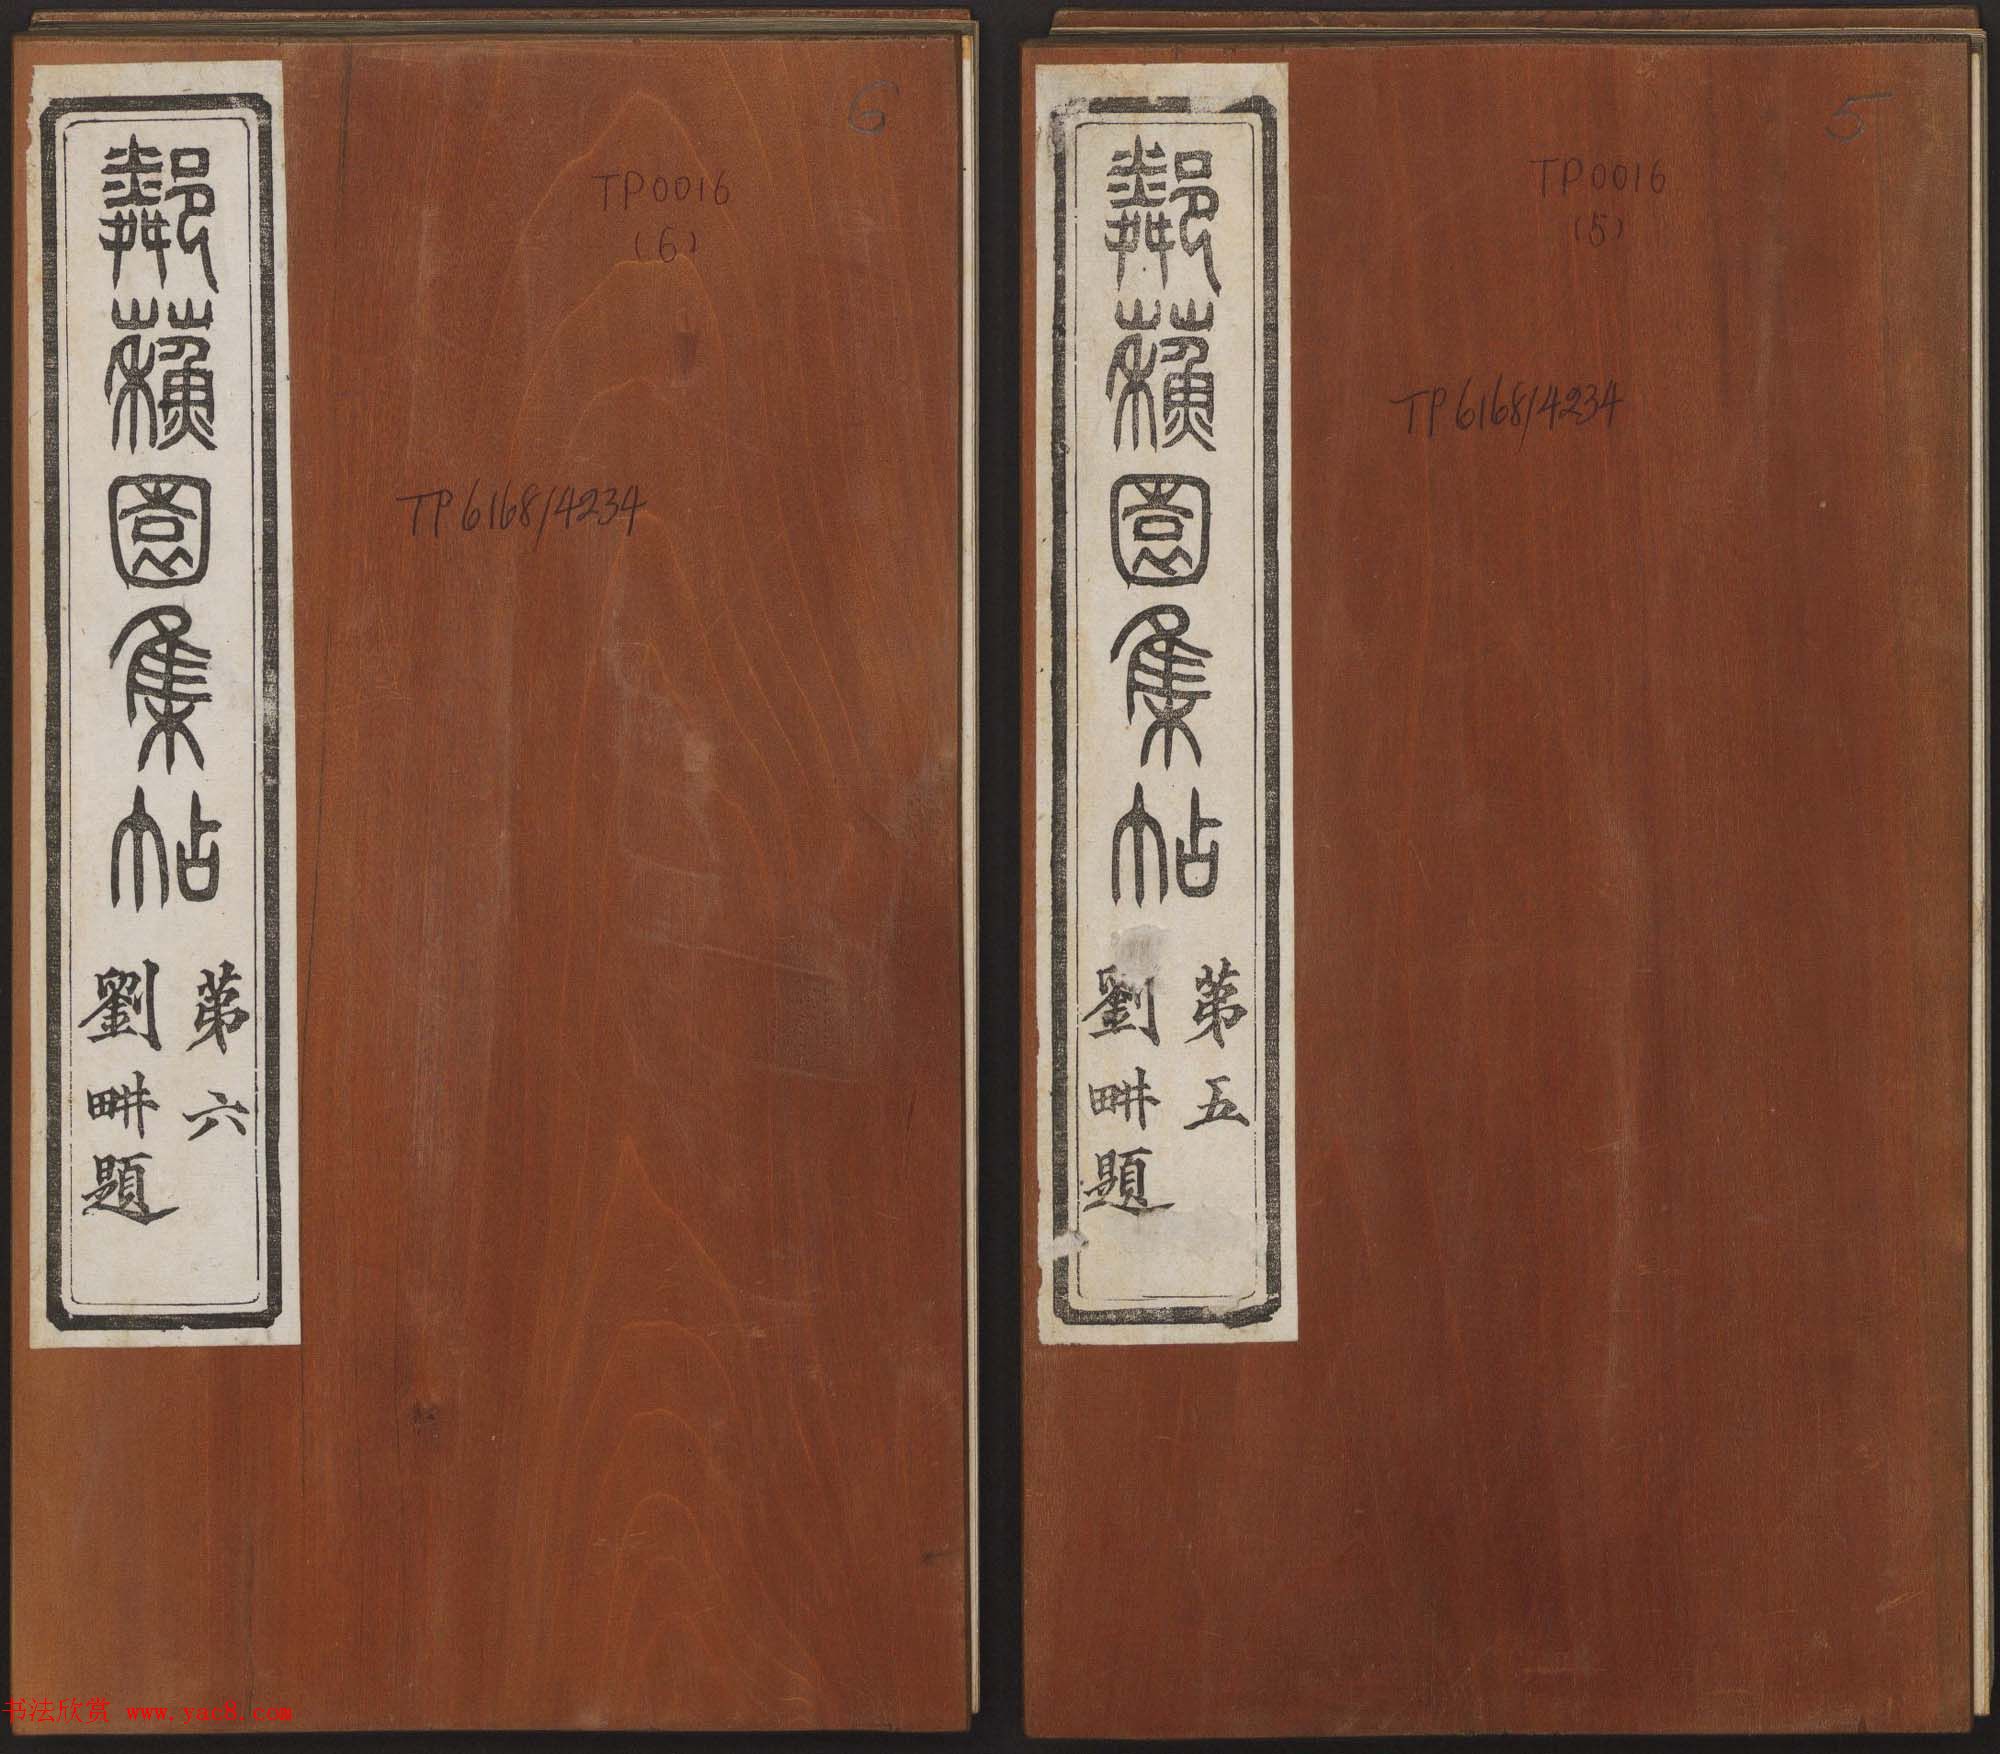 6
TP0016
(6)
TP6168/4234
鄰蘇園集帖
第六
劉畊題
5
TP0016
(5)
TP6168/4234
鄰蘇園集帖
第五
劉畊題
书法欣赏 www.yac8.com